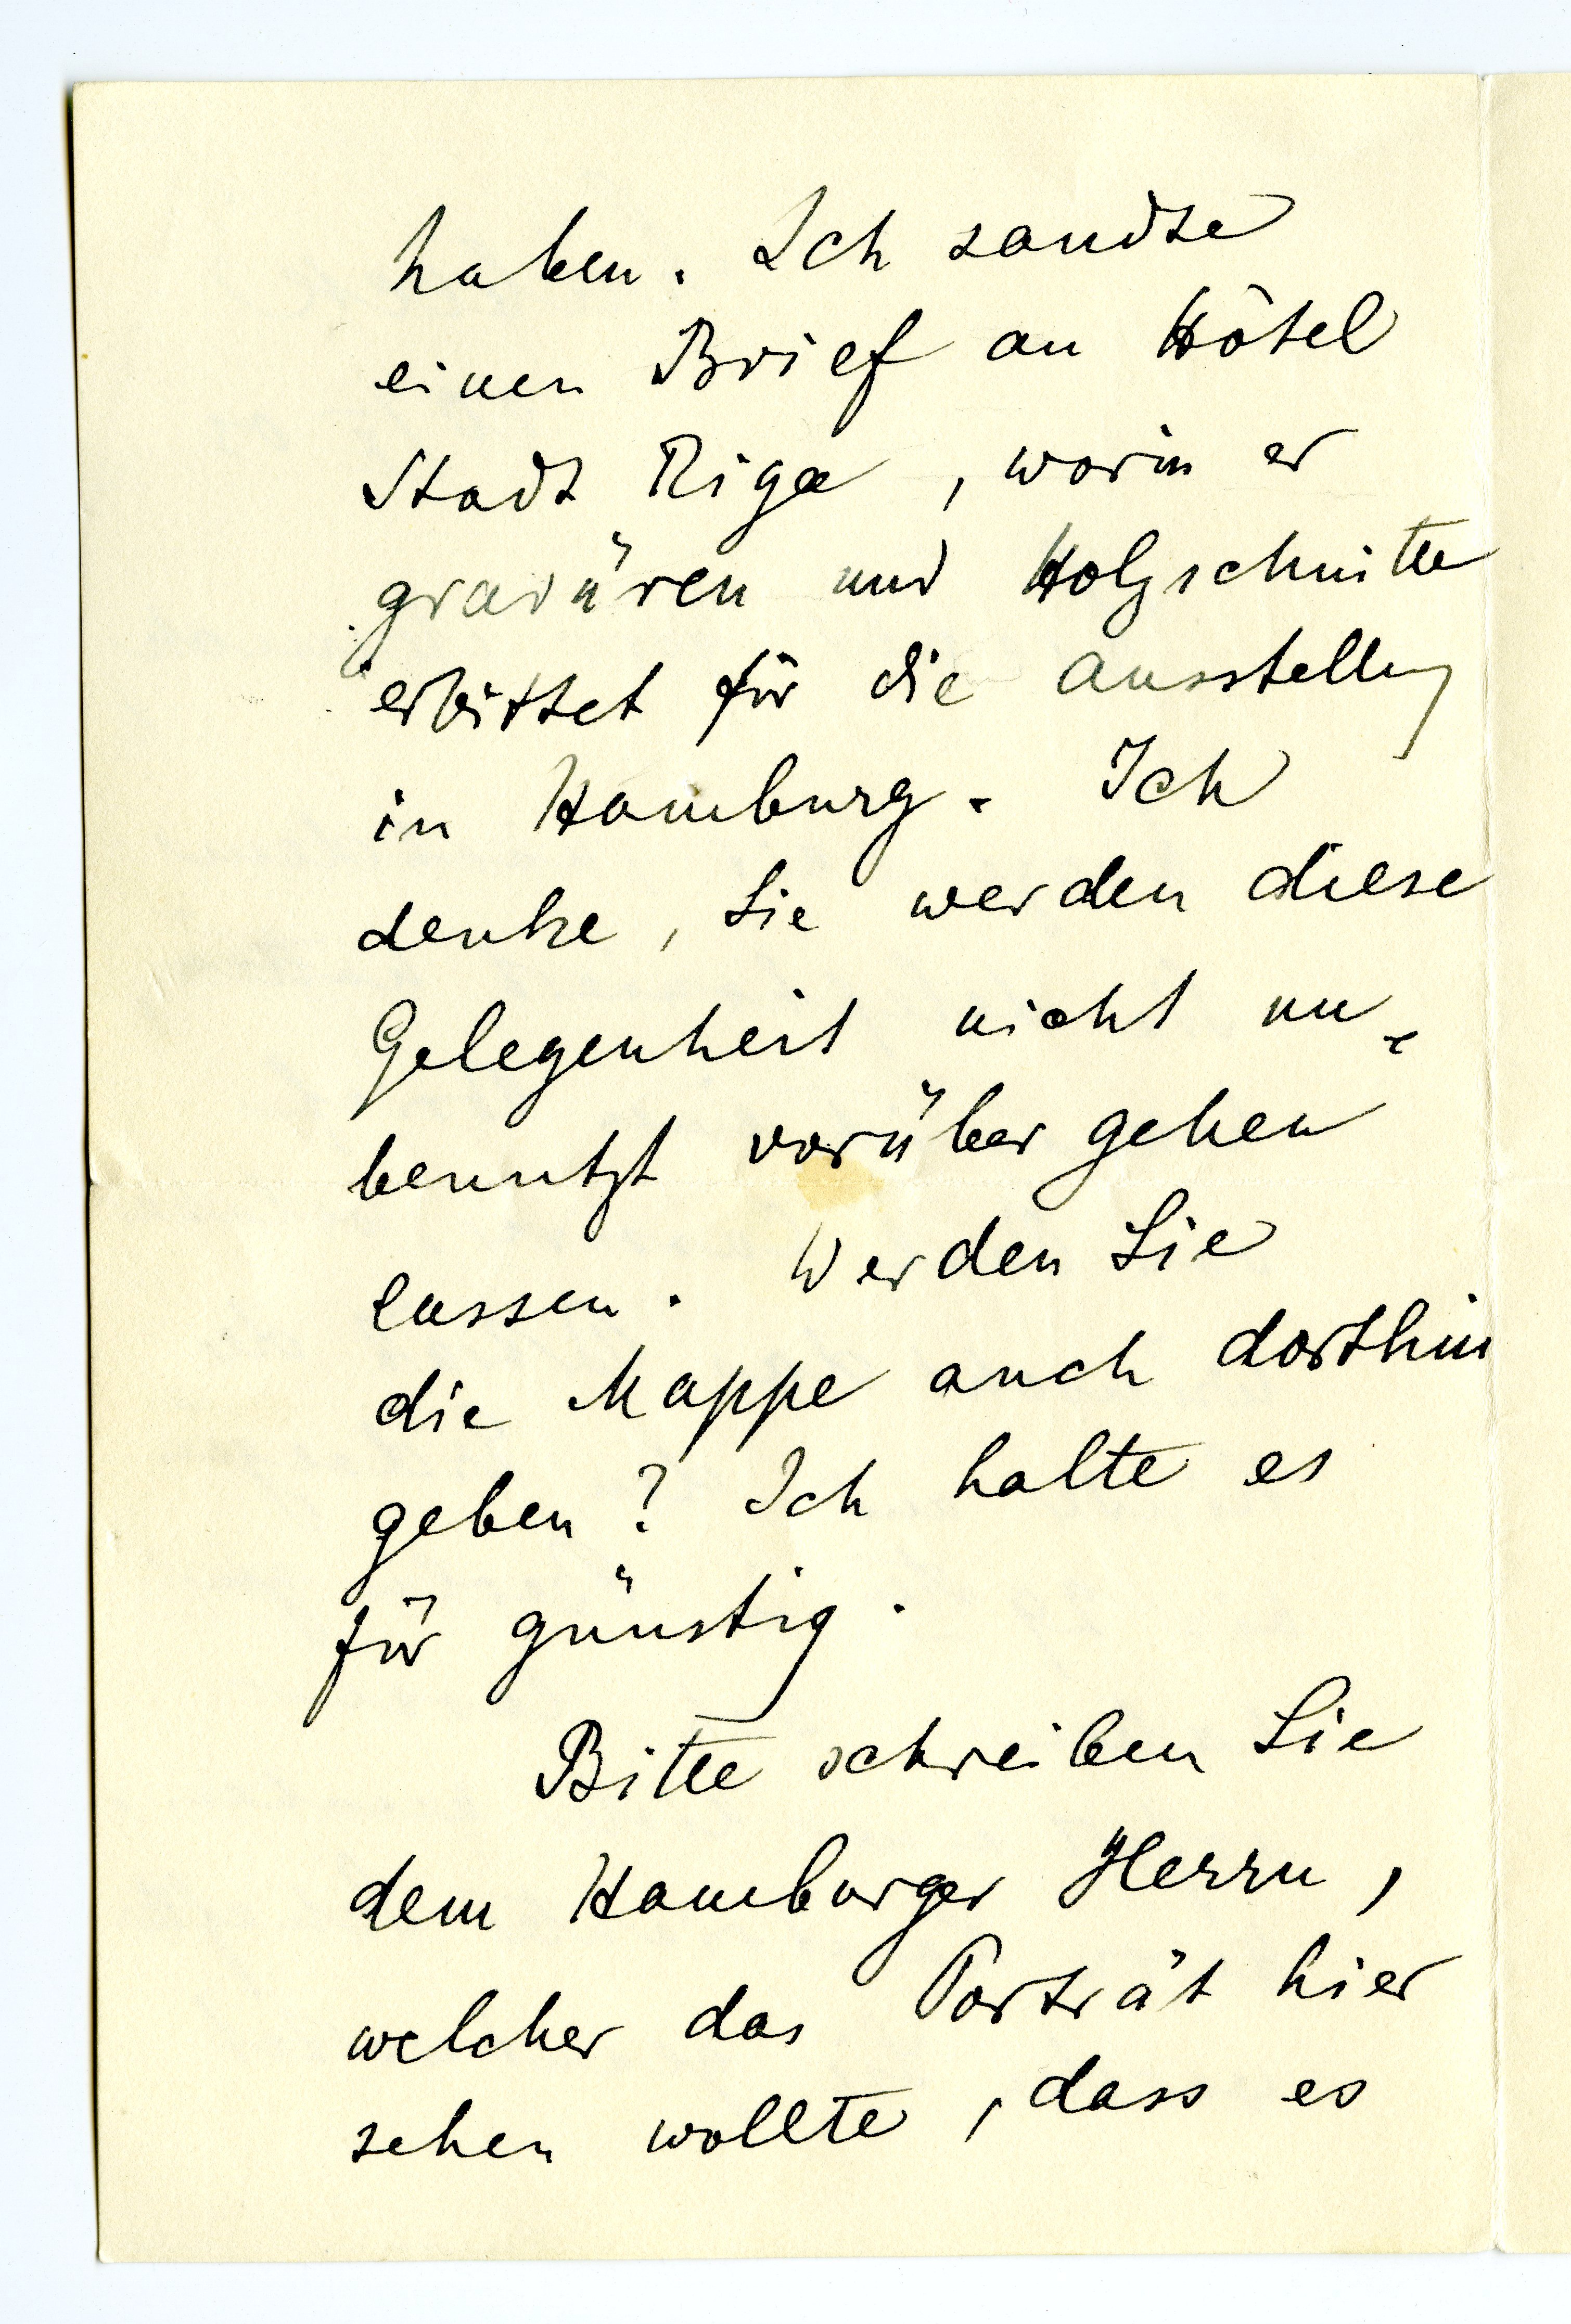 haben. Ich sandte
einen Brief an Hôtel
Stadt Riga, worin er
gravüren und Holzschnitte
erbittet für die Ausstellung
in Hamburg. Ich
denke, Sie werden diese
Gelegenheit nicht un-
benutzt vorüber gehen
lassen. Werden Sie
die Mappe auch dorthin
geben? Ich halte es
für günstig.
Bitte schreiben Sie
dem Hamburger Herrn,
welcher das Porträt hier
sehen wollte, dass es